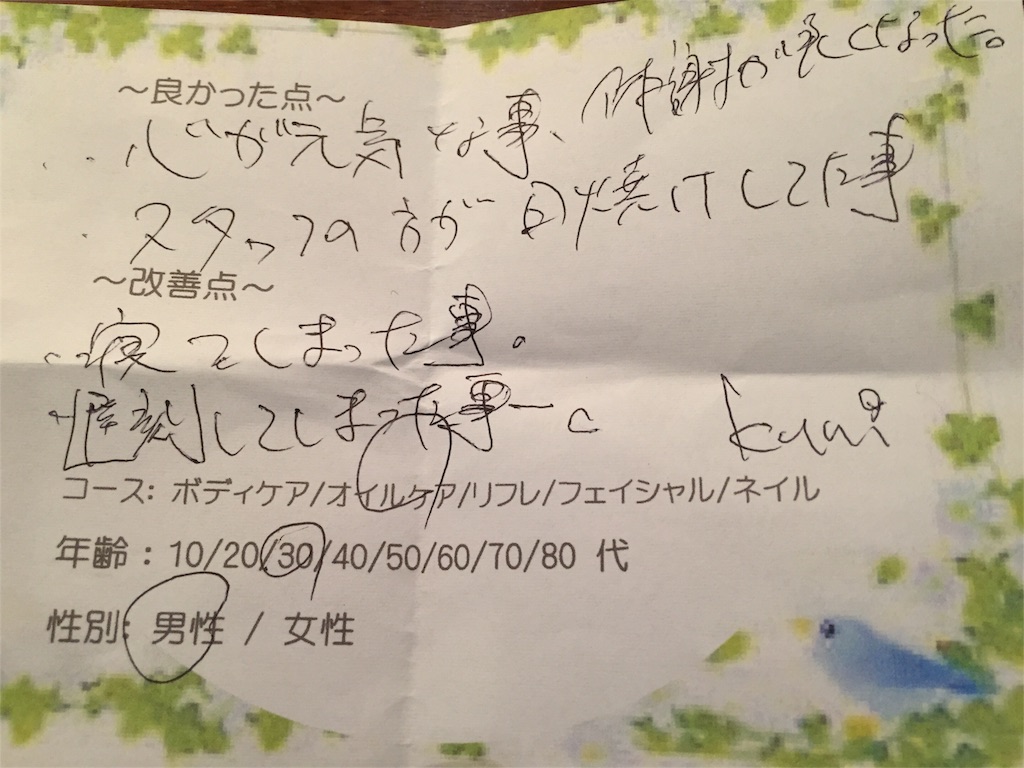 ～良かった点～
心が元気な事、体謝が良くなった。
・スタッフの方が日焼けしてた事
～改善点～
・寝てしまった事。
・遅刻してしまった事
コース: ボディケア/オイルケア/リフレ/フェイシャル/ネイル
年齢 : 10/20/30/40/50/60/70/80 代
性別: 男性 / 女性